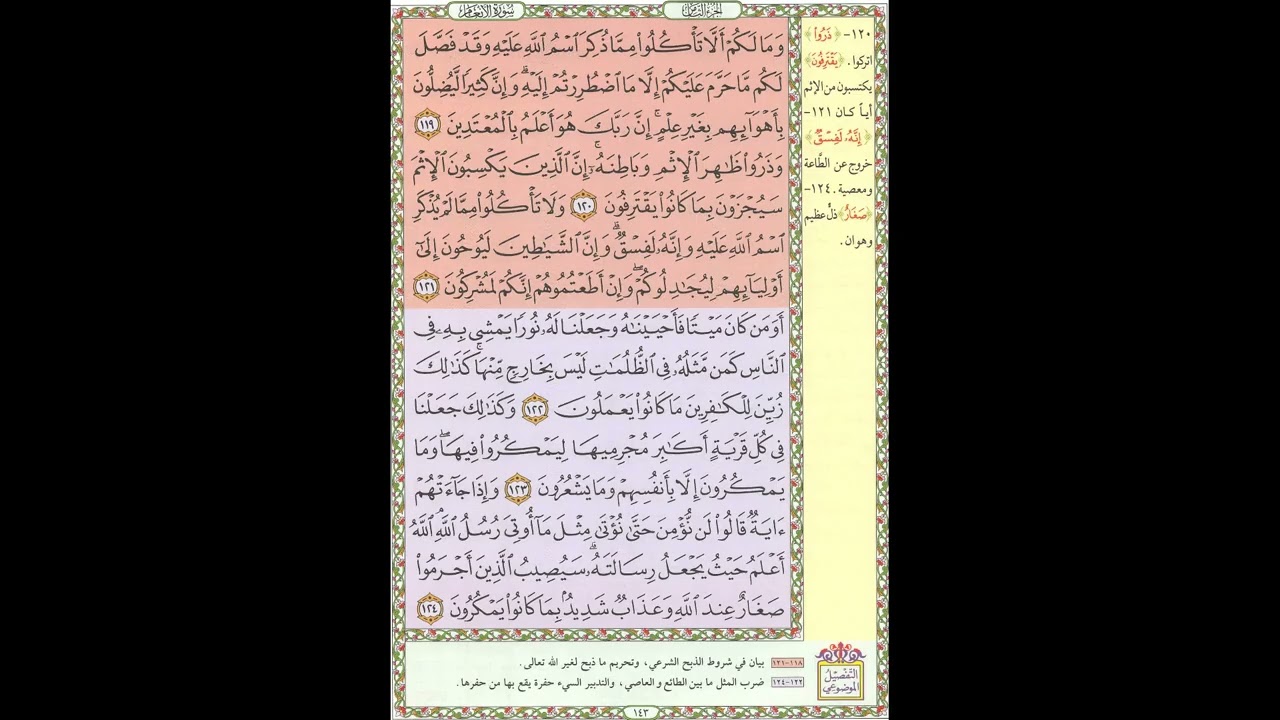 سورة الأنعام
الجزء الثامن
وَمَا لَكُمْ أَلَّا تَأْكُلُوا۟ مِمَّا ذُكِرَ ٱسْمُ ٱللَّهِ عَلَيْهِ وَقَدْ فَصَّلَ
لَكُم مَّا حَرَّمَ عَلَيْكُمْ إِلَّا مَا ٱضْطُرِرْتُمْ إِلَيْهِ ۗ وَإِنَّ كَثِيرًا لَّيُضِلُّونَ
بِأَهْوَآئِهِم بِغَيْرِ عِلْمٍ ۗ إِنَّ رَبَّكَ هُوَ أَعْلَمُ بِٱلْمُعْتَدِينَ ١١٩
وَذَرُوا۟ ظَـٰهِرَ ٱلْإِثْمِ وَبَاطِنَهُۥٓ ۚ إِنَّ ٱلَّذِينَ يَكْسِبُونَ ٱلْإِثْمَ
سَيُجْزَوْنَ بِمَا كَانُوا۟ يَقْتَرِفُونَ ١٢٠ وَلَا تَأْكُلُوا۟ مِمَّا لَمْ يُذْكَرِ
ٱسْمُ ٱللَّهِ عَلَيْهِ وَإِنَّهُۥ لَفِسْقٌ ۗ وَإِنَّ ٱلشَّيَـٰطِينَ لَيُوحُونَ إِلَىٰٓ
أَوْلِيَآئِهِمْ لِيُجَـٰدِلُوكُمْ ۖ وَإِنْ أَطَعْتُمُوهُمْ إِنَّكُمْ لَمُشْرِكُونَ ١٢١
أَوَمَن كَانَ مَيْتًا فَأَحْيَيْنَـٰهُ وَجَعَلْنَا لَهُۥ نُورًا يَمْشِى بِهِۦ فِى
ٱلنَّاسِ كَمَن مَّثَلُهُۥ فِى ٱلظُّلُمَـٰتِ لَيْسَ بِخَارِجٍ مِّنْهَا ۚ كَذَٰلِكَ
زُيِّنَ لِلْكَـٰفِرِينَ مَا كَانُوا۟ يَعْمَلُونَ ١٢٢ وَكَذَٰلِكَ جَعَلْنَا
فِى كُلِّ قَرْيَةٍ أَكَـٰبِرَ مُجْرِمِيهَا لِيَمْكُرُوا۟ فِيهَا ۖ وَمَا
يَمْكُرُونَ إِلَّا بِأَنفُسِهِمْ وَمَا يَشْعُرُونَ ١٢٣ وَإِذَا جَآءَتْهُمْ
ءَايَةٌ قَالُوا۟ لَن نُّؤْمِنَ حَتَّىٰ نُؤْتَىٰ مِثْلَ مَآ أُوتِىَ رُسُلُ ٱللَّهِ ۘ ٱللَّهُ
أَعْلَمُ حَيْثُ يَجْعَلُ رِسَالَتَهُۥ ۗ سَيُصِيبُ ٱلَّذِينَ أَجْرَمُوا۟
صَغَارٌ عِندَ ٱللَّهِ وَعَذَابٌ شَدِيدٌۢ بِمَا كَانُوا۟ يَمْكُرُونَ ١٢٤
١٢٠- ﴿ذَرُوا۟﴾
اتركوا. ﴿يَقْتَرِفُونَ﴾
يكتسبون من الإثم
أياً كان ١٢١-
﴿إِنَّهُۥ لَفِسْقٌ﴾
خروج عن الطَّاعة
ومعصية. ١٢٤-
﴿صَغَارٌ﴾ ذلٌّ عظيم
وهوان.
التفصيل الموضوعي
١١٨-١٢١ بيان في شروط الذبح الشرعي، وتحريم ما ذبح لغير الله تعالى.
١٢٢-١٢٤ ضرب المثل ما بين الطائع والعاصي، والتدبير السيء حفرة يقع بها من حفرها.
١٤٣